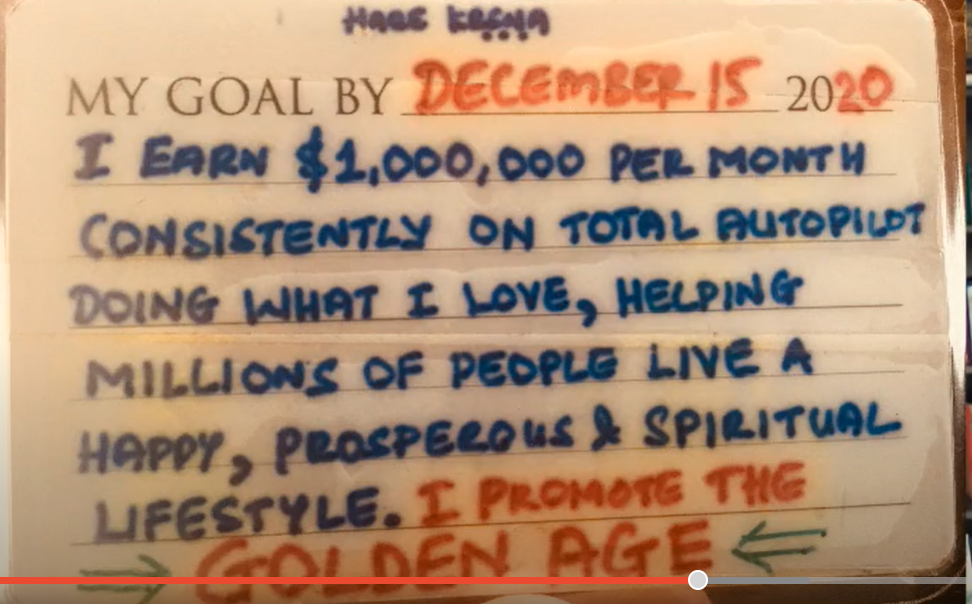 HARE KṚṢṆA
MY GOAL BY DECEMBER 15 2020
I EARN $1,000,000 PER MONTH
CONSISTENTLY ON TOTAL AUTOPILOT
DOING WHAT I LOVE, HELPING
MILLIONS OF PEOPLE LIVE A
HAPPY, PROSPEROUS & SPIRITUAL
LIFESTYLE. I PROMOTE THE
⇒ GOLDEN AGE ⇐